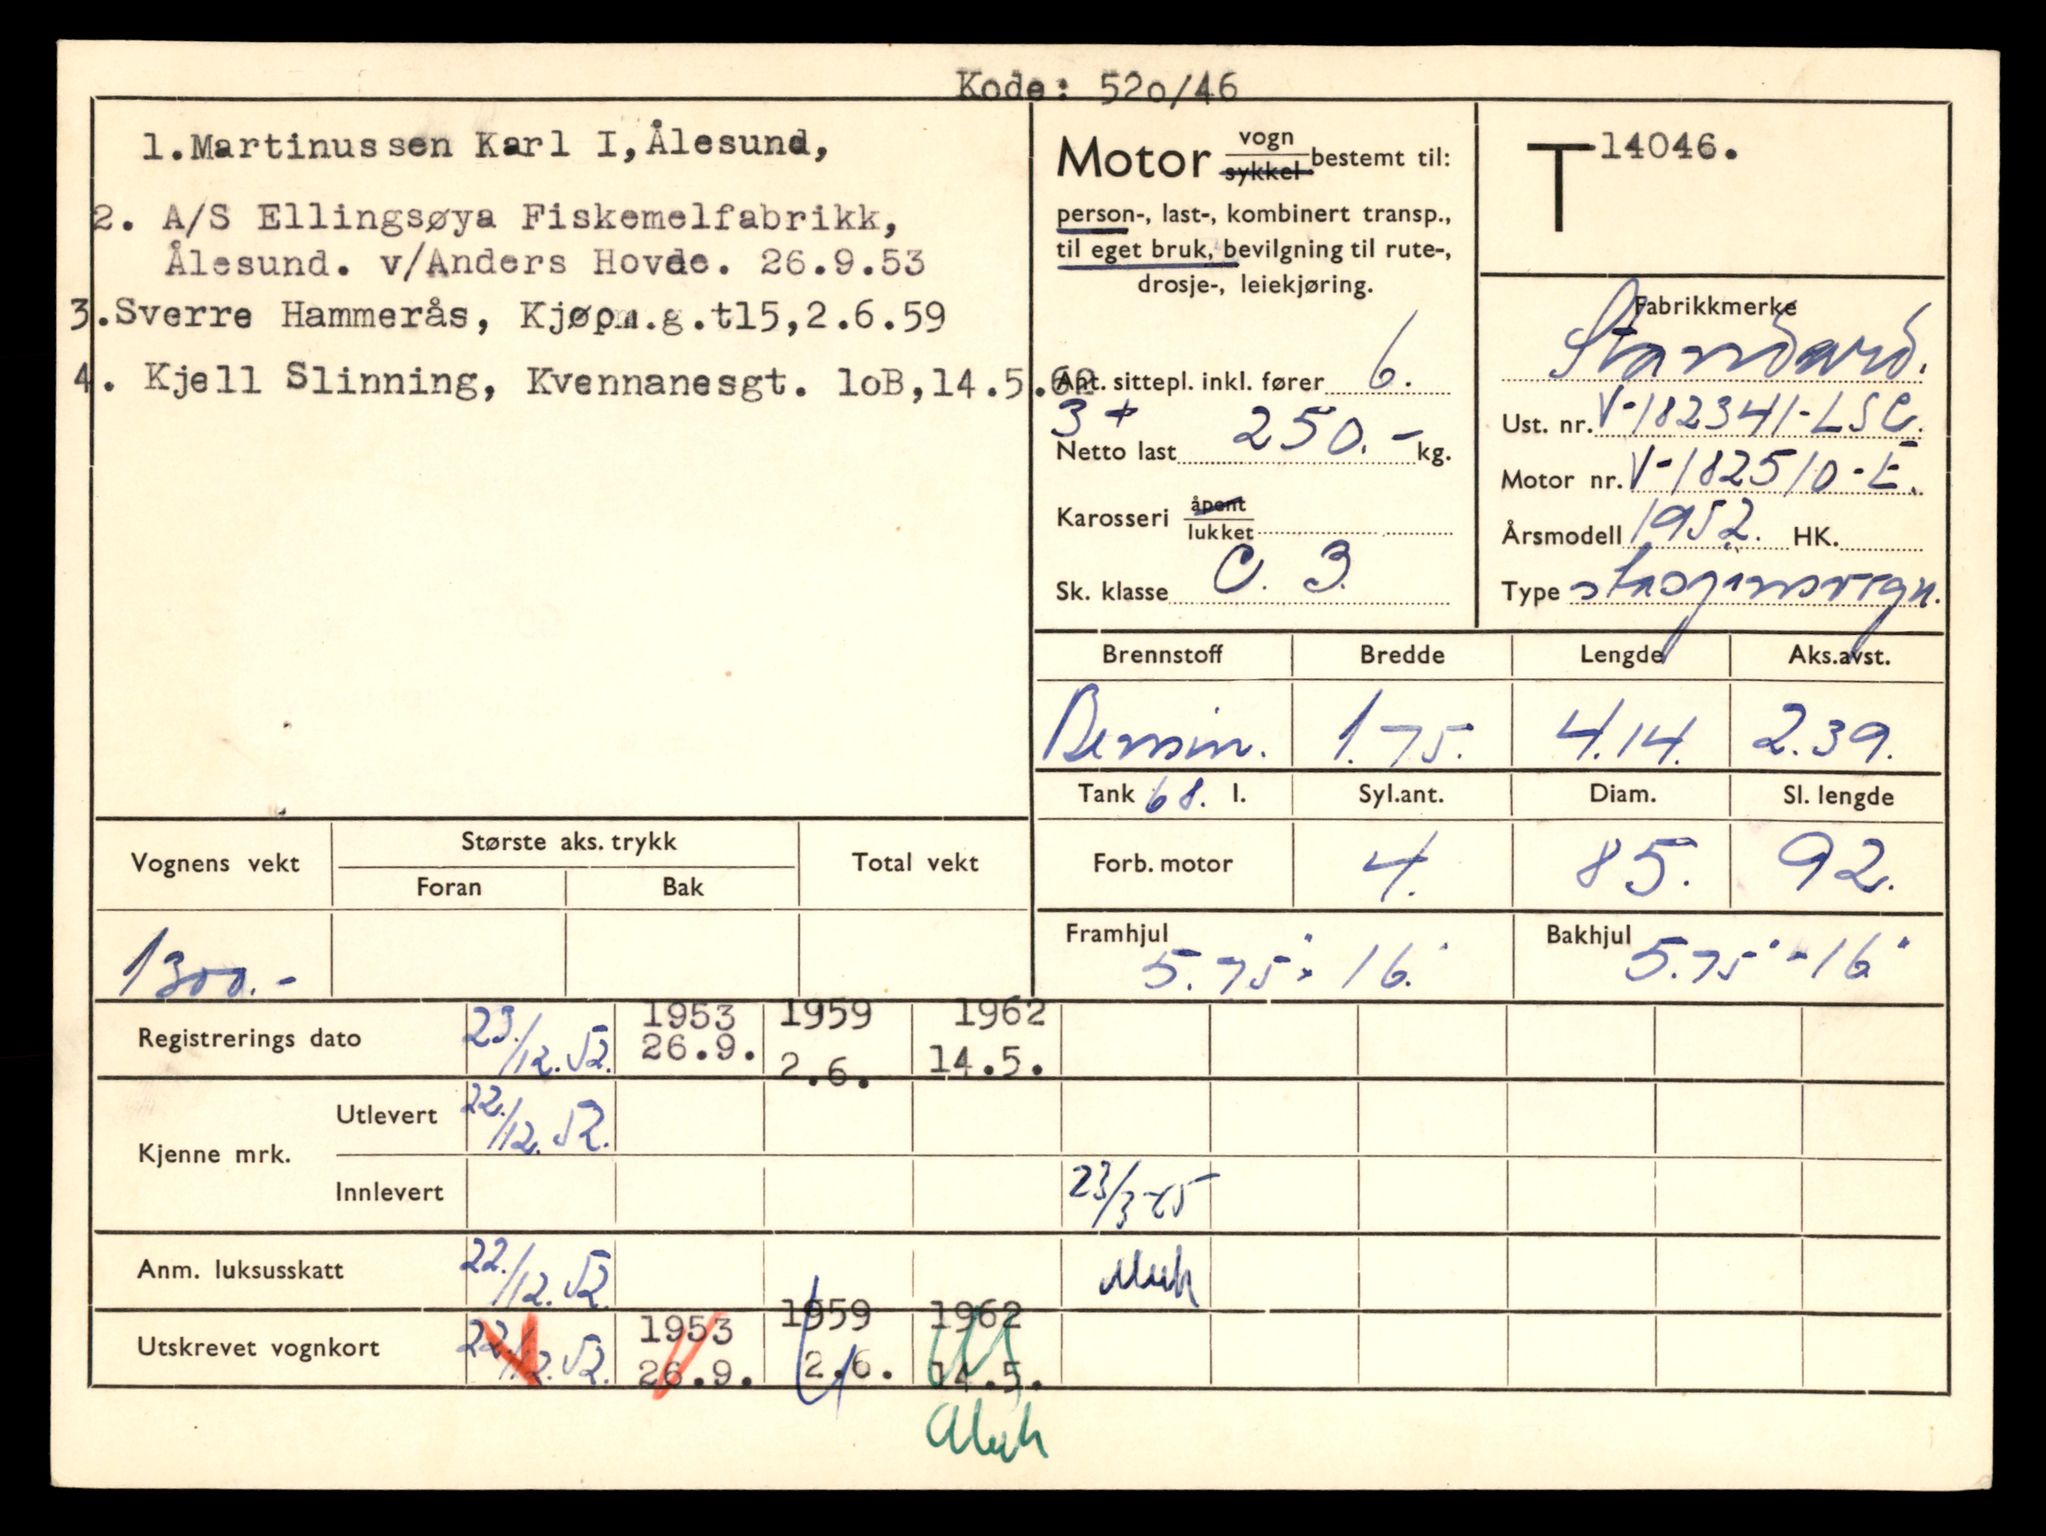 Kode: 52o/46
1.Martinussen Karl I,Ålesund,
2. A/S Ellingsøya Fiskemelfabrikk,
Ålesund. v/Anders Hovde. 26.9.53
3.Sverre Hammerås, Kjøpm.g.t15,2.6.59
4. Kjell Slinning, Kvennanesgt. 1oB,14.5.62
Motor vogn sykkel bestemt til:
person-, last-, kombinert transp.,
til eget bruk, bevilgning til rute-,
drosje-, leiekjøring.
Ant. sittepl. inkl. fører 6.
3 +
Netto last 250.- kg.
Karosseri åpent lukket
Sk. klasse C. 3.
T 14046.
Fabrikkmerke
Standard.
Ust. nr. V-182341-LSC.
Motor nr. V-182510-E.
Årsmodell 1952. HK.
Type stasjonsvogn.
Brennstoff Bredde Lengde Aks.avst.
Bensin. 1.75. 4.14. 2.39.
Tank 68. l. Syl.ant. Diam. Sl. lengde
Forb. motor 4. 85. 92.
Framhjul 5.75" - 16" Bakhjul 5.75" - 16"
Vognens vekt Største aks. trykk Total vekt
Foran Bak
1300.-
Registrerings dato 23./12.52. 1953 26.9. 1959 2.6. 1962 14.5.
Kjenne mrk. Utlevert 22./12.52.
Innlevert 23/3-65
Anm. luksusskatt 22./12.52.
Utskrevet vognkort 22./12.52. 1953 26.9. 1959 2.6. 1962 14.5.